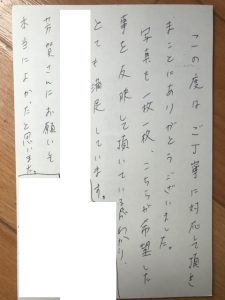 この度は ご丁寧に対応して頂き
まことにありがとうございました。
写真も一枚一枚、こちらが希望した
事を反映して頂いているのがわかり、
とても満足しています。
芳賀さんにお願いして
本当によかったと思います。